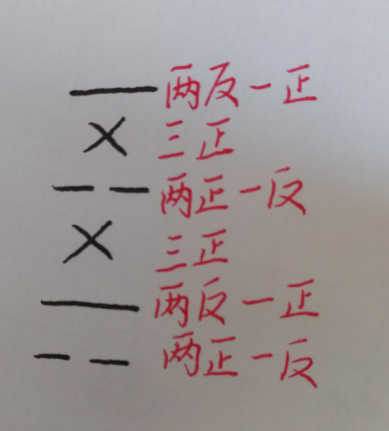 两反一正
三正
两正一反
三正
两反一正
两正一反